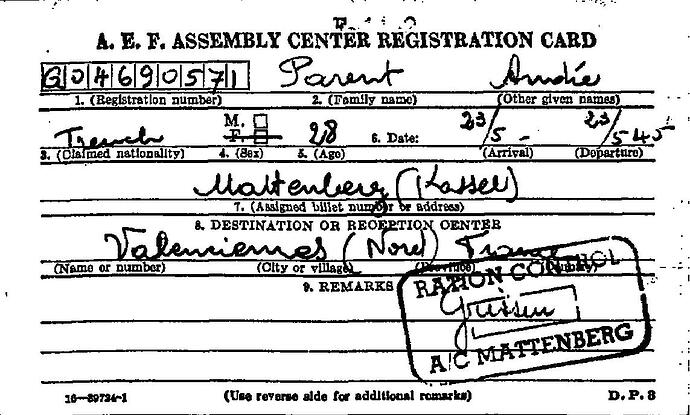 A. E. F. ASSEMBLY CENTER REGISTRATION CARD
G04690571 Parent André
1. (Registration number) 2. (Family name) (Other given names)
M.
French F. 28 6. Date: 23/5 - 23/5 45
3. (Claimed nationality) 4. (Sex) 5. (Age) (Arrival) (Departure)
Mattenberg (Kassel)
7. (Assigned billet number or address)
8. DESTINATION OR RECEPTION CENTER
Valenciennes (Nord) France
(Name or number) (City or village) (Province) (Country)
9. REMARKS
RATION CONTROL
A/C MATTENBERG
16-39724-1 (Use reverse side for additional remarks) D. P. 3